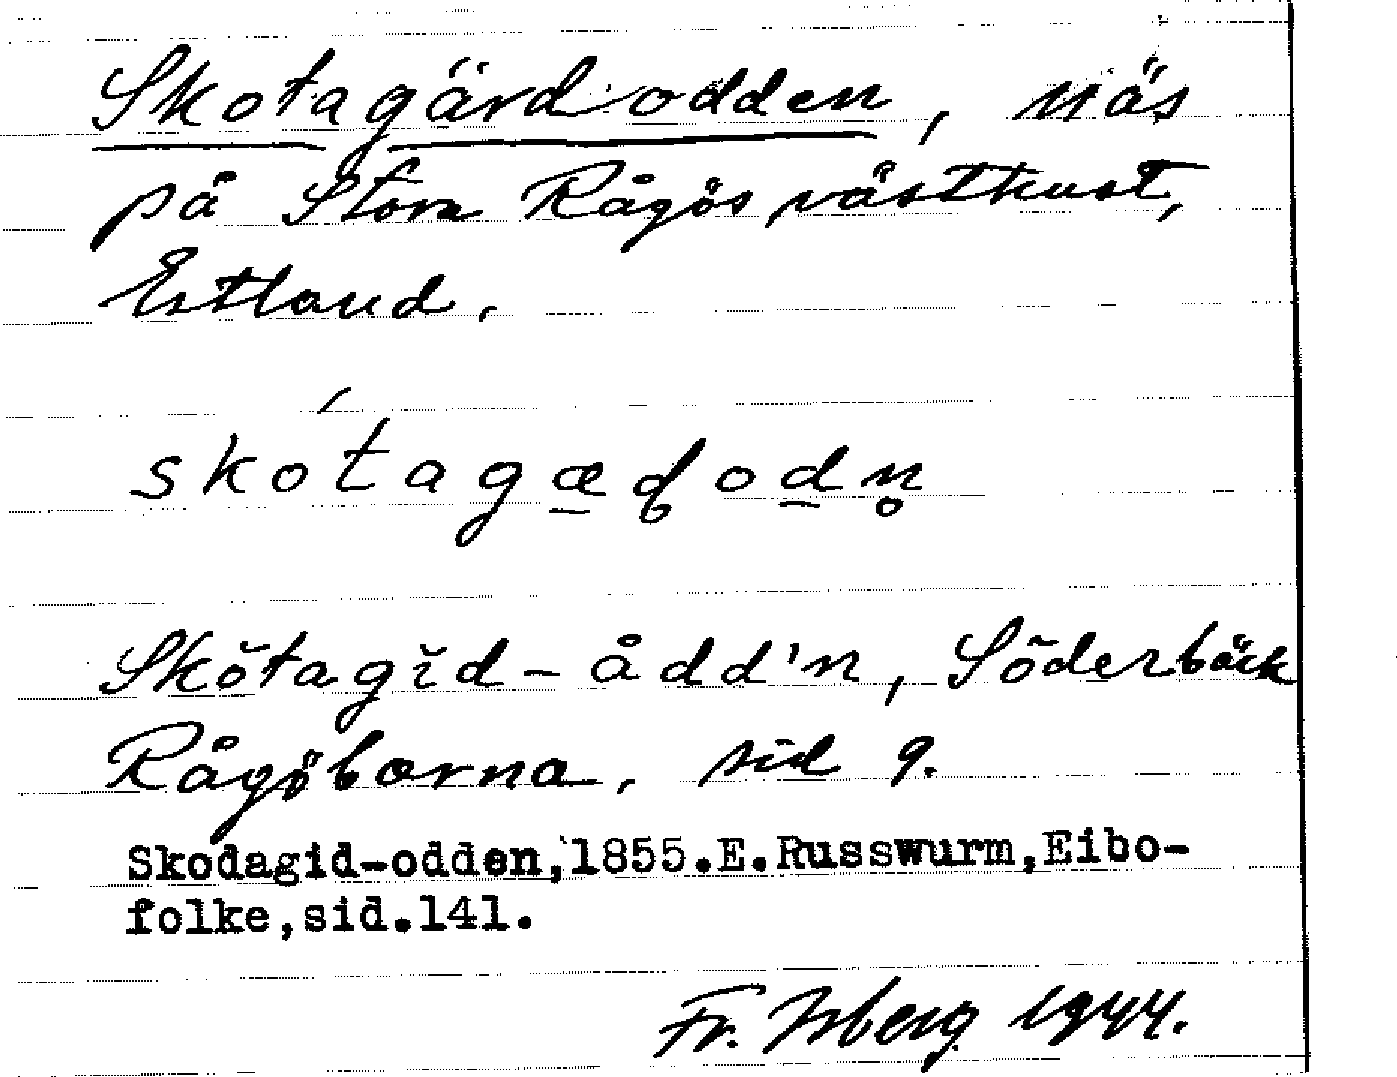 Skotagärdodden, näs
på Stora Rågös västkust,
Estland.
skótagæđodn̥
Skŏtagĭd-ådd'n, Söderbäck
Rågöborna, sid 9.
Skodagid-odden, 1855.E.Russwurm,Eibo-
folke,sid.141.
Fr. Isberg 1944.